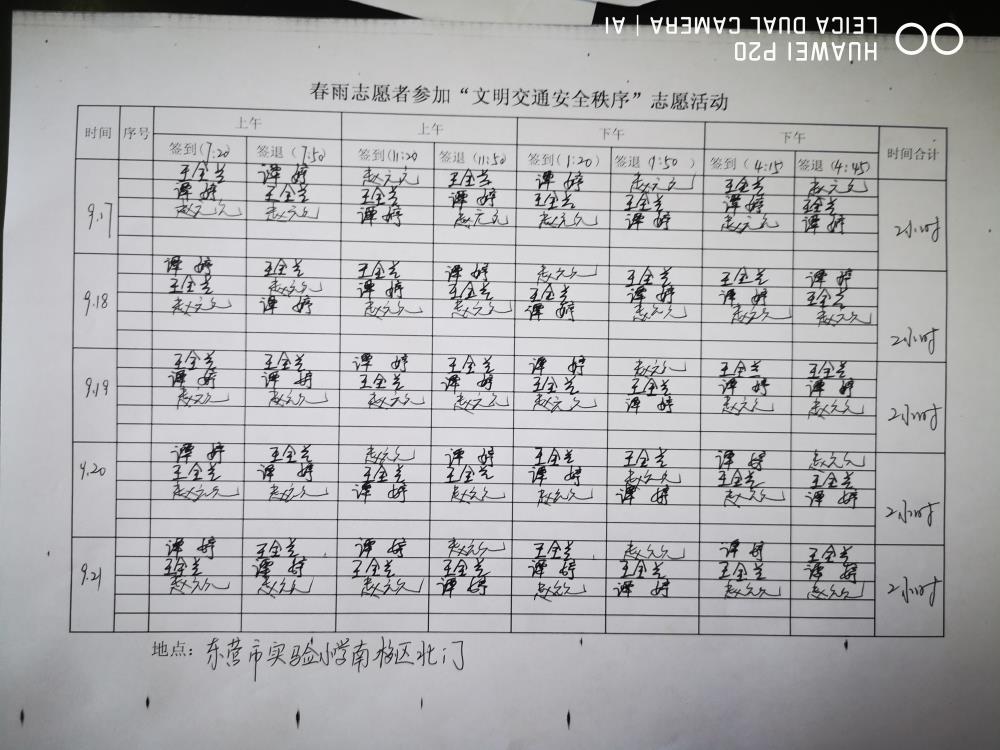 HUAWEI P20
LEICA DUAL CAMERA | AI
春雨志愿者参加“文明交通安全秩序”志愿活动
时间 序号 上午 上午 下午 下午 时间合计
签到(7:20) 签退(7:50) 签到(11:20 签退(11:50) 签到(1:20) 签退(1:50) 签到(4:15) 签退(4:45)
9.17 2小时
王全兰 谭婷 赵元元 王全兰 谭婷 赵元元 王全兰 赵元元
谭婷 王全兰 王全兰 谭婷 王全兰 王全兰 谭婷 王全兰
赵元元 赵元元 谭婷 赵元元 赵元元 谭婷 赵元元 谭婷
9.18 2小时
谭婷 王全兰 王全兰 谭婷 赵元元 王全兰 王全兰 谭婷
王全兰 赵元元 谭婷 王全兰 王全兰 谭婷 谭婷 王全兰
赵元元 谭婷 赵元元 赵元元 谭婷 赵元元 赵元元 赵元元
9.19 2小时
王全兰 王全兰 谭婷 王全兰 谭婷 赵元元 王全兰 王全兰
谭婷 谭婷 王全兰 谭婷 王全兰 王全兰 谭婷 谭婷
赵元元 赵元元 赵元元 赵元元 赵元元 谭婷 赵元元 赵元元
9.20 2小时
谭婷 王全兰 赵元元 谭婷 王全兰 王全兰 谭婷 赵元元
王全兰 谭婷 王全兰 王全兰 谭婷 赵元元 王全兰 王全兰
赵元元 赵元元 谭婷 赵元元 赵元元 谭婷 赵元元 谭婷
9.21 2小时
谭婷 王全兰 谭婷 赵元元 王全兰 赵元元 谭婷 王全兰
王全兰 谭婷 王全兰 王全兰 谭婷 王全兰 王全兰 谭婷
赵元元 赵元元 赵元元 谭婷 赵元元 谭婷 赵元元 赵元元
地点：东营市实验小学南校区北门